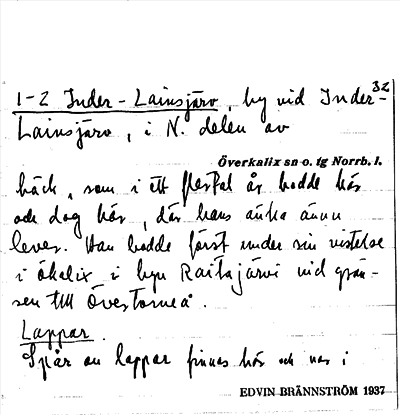 32
1-2 Inder-Lainsjärv, by vid Inder-
Lainsjärv, i N. delen av
Överkalix sn o. tg Norrb. l.
bäck, som i ett flertal år bodde här
och dog här, där hans änka ännu
lever. Han bodde först under sin vistelse
i Ökalix i byn Raitajärvi vid grän-
sen till Övertorneå.
Lappar.
Spår av lappar finnes här och var i
EDVIN BRÄNNSTRÖM 1937